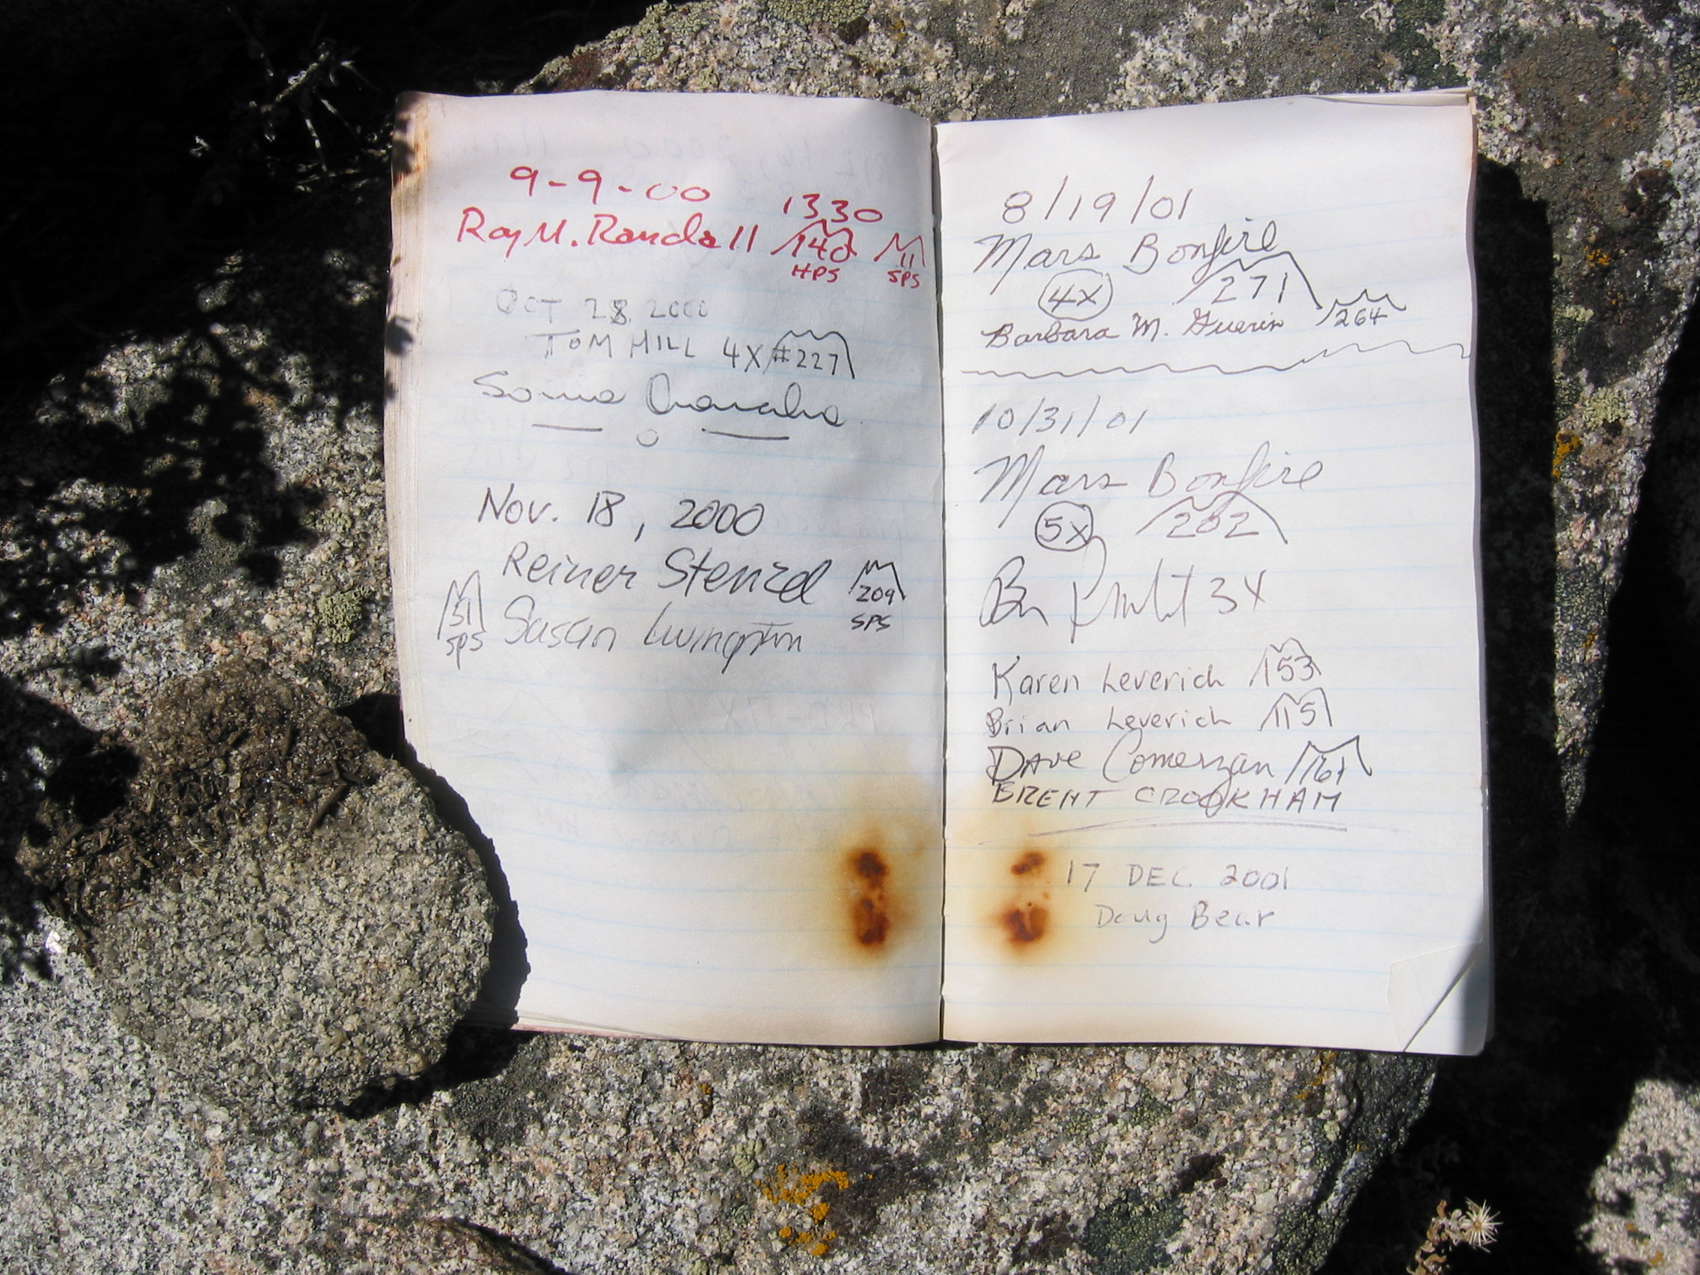 9-9-00
1330
Roy M. Randall 140 11
HPS SPS
OCT 28 2000
TOM HILL 4X #227
Nov. 18, 2000
Reiner Stenzel 209
SPS
51 Susan Livingston
SPS
8/19/01
Mars Bonfire
4X 271
Barbara M. Guerin 264
10/31/01
Mars Bonfire
5X
3X
Karen Leverich 153
Brian Leverich 115
DAVE Comerzan 161
BRENT CROOKHAM
17 DEC. 2001
Doug Bear